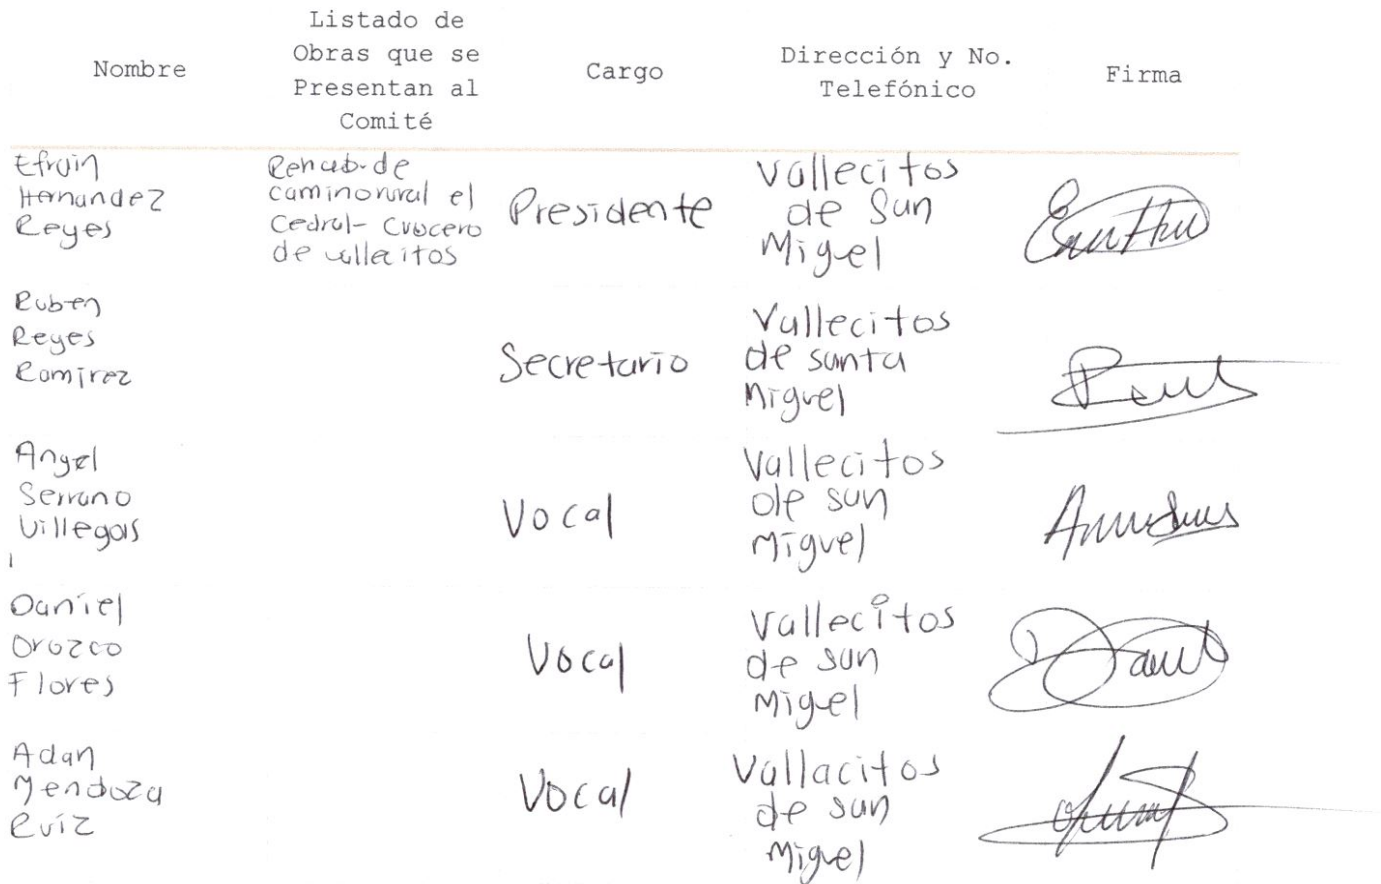 Nombre
Listado de
Obras que se
Presentan al
Comité
Cargo
Dirección y No.
Telefónico
Firma
Efrain
Hernandez
Reyes
Rehab. de
camino rural el
Cedral - Crucero
de vallecitos
Presidente
Vallecitos
de San
Miguel
Ruben
Reyes
Ramirez
Secretario
Vallecitos
de santa
Miguel
Angel
Serrano
Villegas
Vocal
Vallecitos
de san
Miguel
Daniel
Orozco
Flores
Vocal
Vallecitos
de san
Miguel
Adan
Mendoza
Ruiz
Vocal
Vallacitos
de san
Miguel